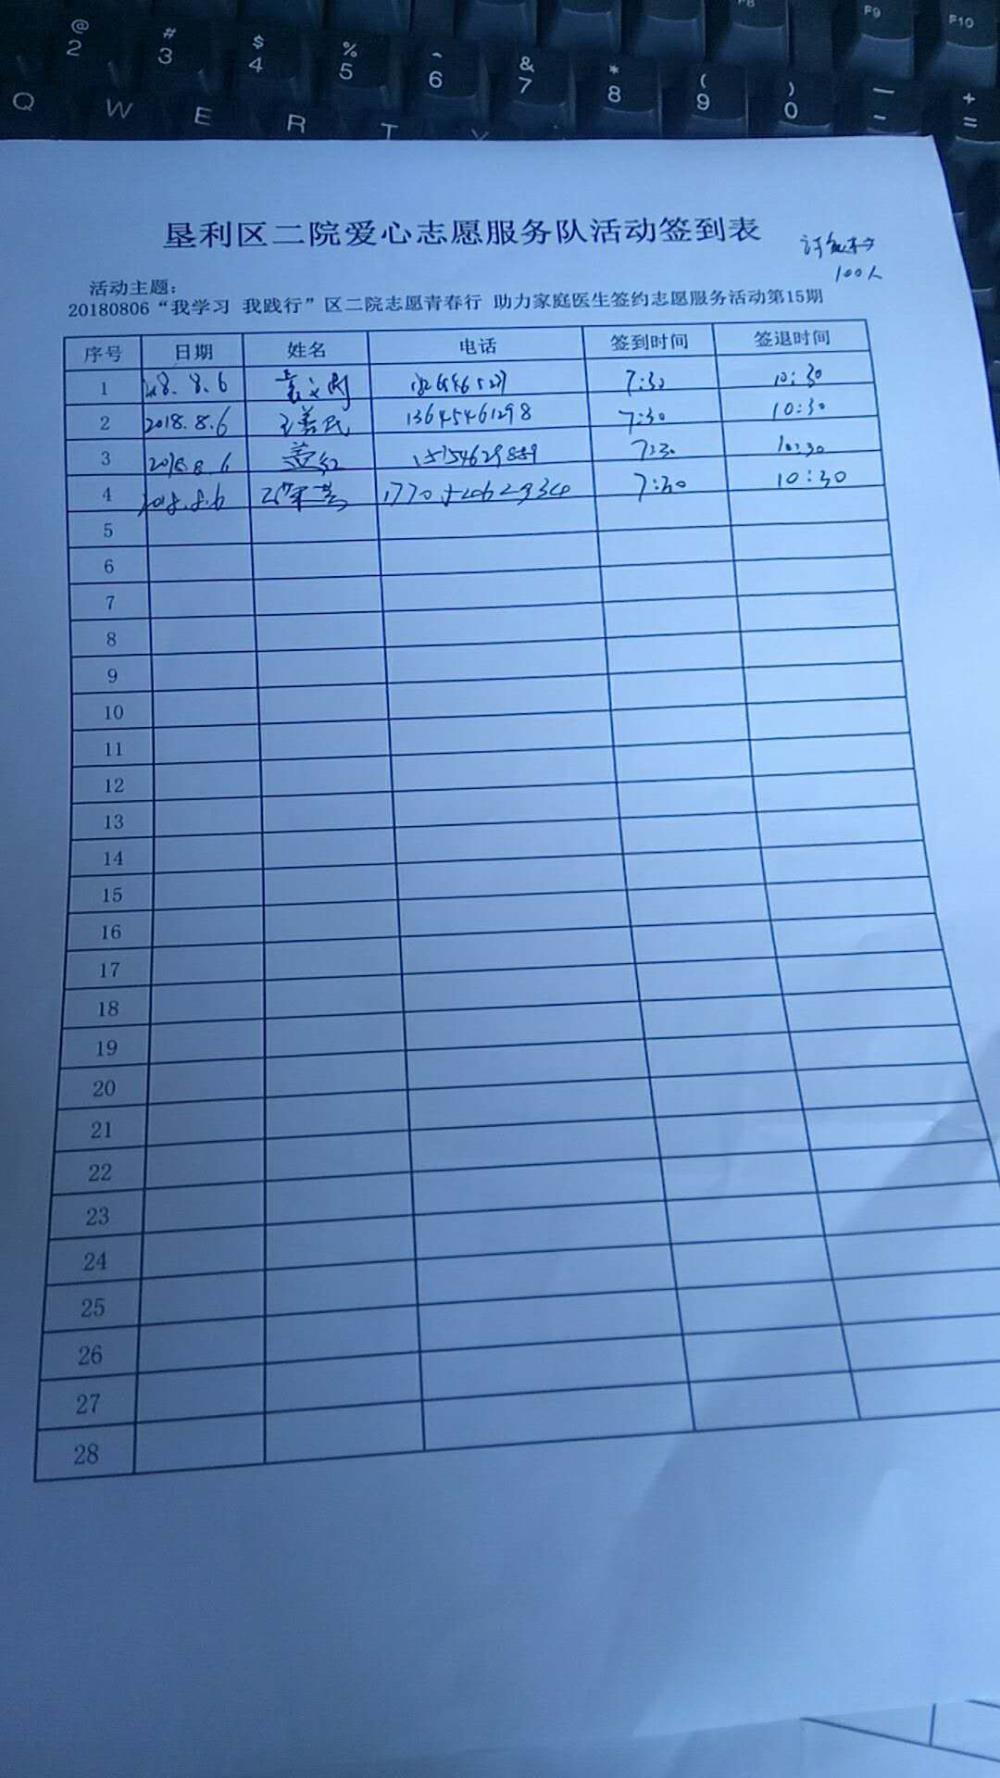 @ # $ % ^ & * ( ) — +
2 3 4 5 6 7 8 9 0 - =
F8 F9 F10
Q W E R T Y
垦利区二院爱心志愿服务队活动签到表
100人
活动主题：
20180806“我学习 我践行”区二院志愿青春行 助力家庭医生签约志愿服务活动第15期
序号 日期 姓名 电话 签到时间 签退时间
1 8.8.6 7:30 10:30
2 2018.8.6 王美民 13645461298 7:30 10:30
3 2018.8.6 盖红 15154629889 7:30 10:30
4 2018.8.6 7:30 10:30
5
6
7
8
9
10
11
12
13
14
15
16
17
18
19
20
21
22
23
24
25
26
27
28